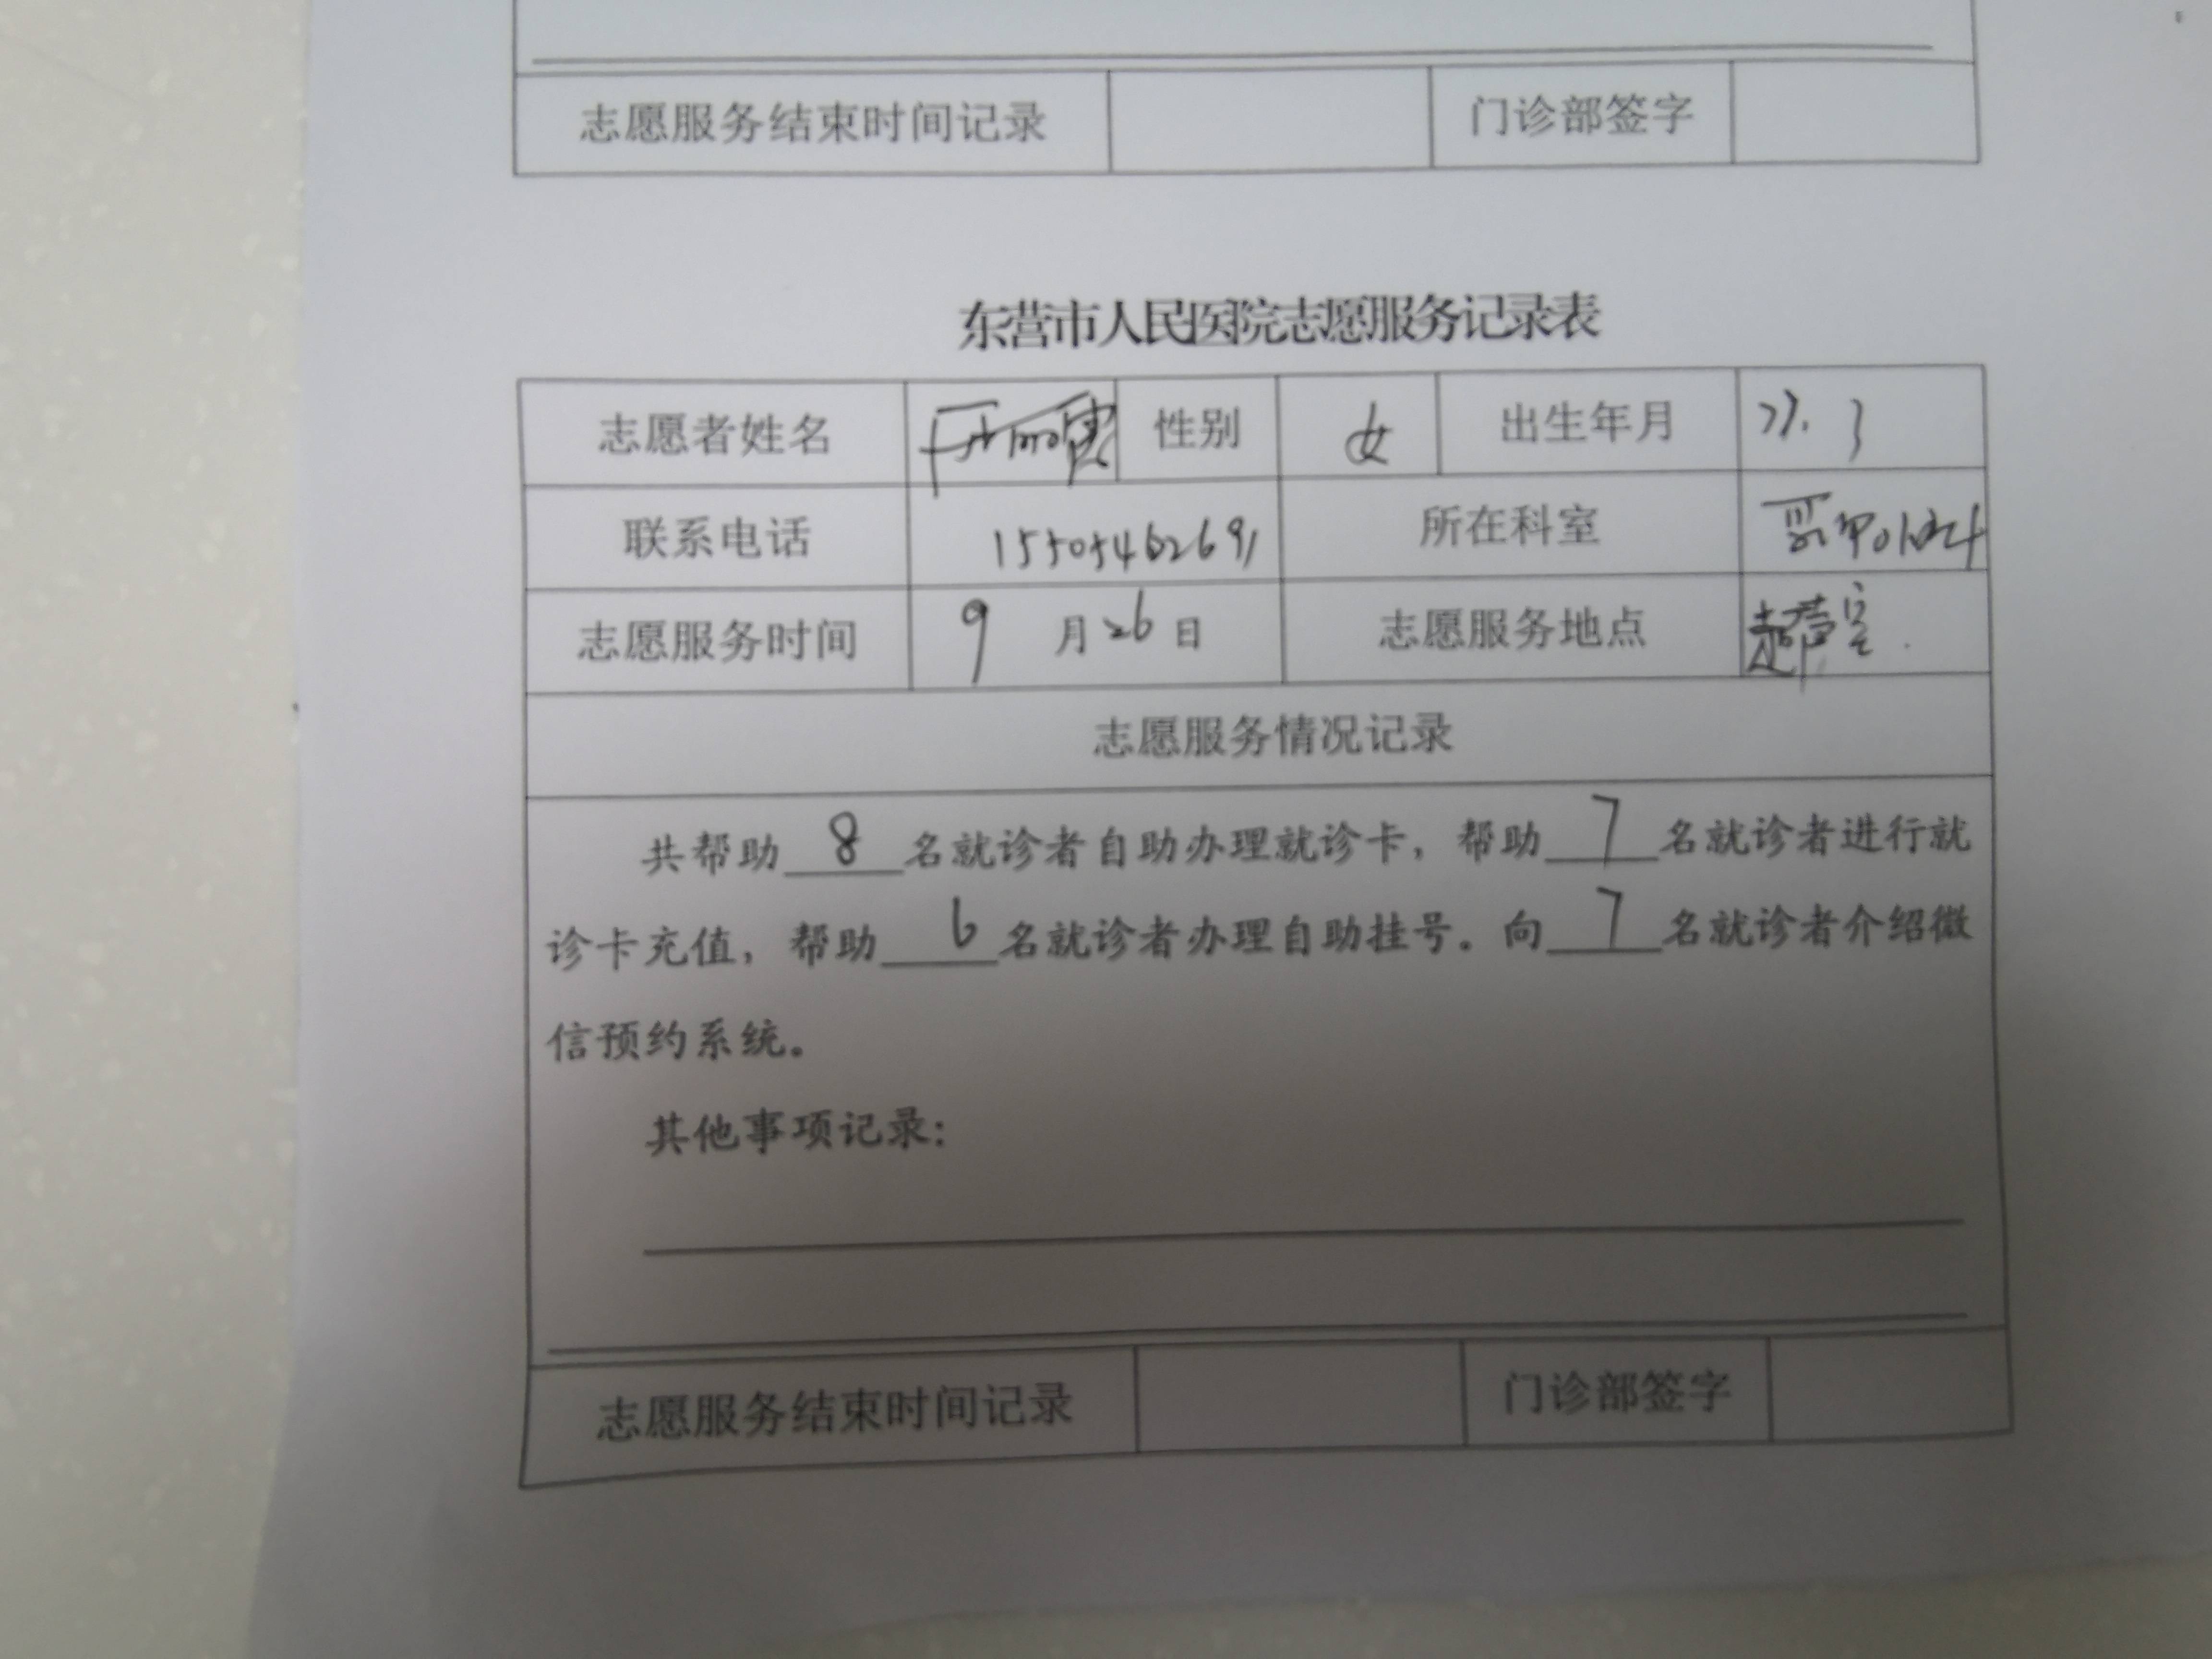 志愿服务结束时间记录 门诊部签字
东营市人民医院志愿服务记录表
志愿者姓名 性别 女 出生年月
联系电话 15505462691 所在科室
志愿服务时间 9月26日 志愿服务地点 超声室.
志愿服务情况记录
共帮助8名就诊者自助办理就诊卡，帮助7名就诊者进行就
诊卡充值，帮助6名就诊者办理自助挂号。向7名就诊者介绍微
信预约系统。
其他事项记录：
志愿服务结束时间记录 门诊部签字